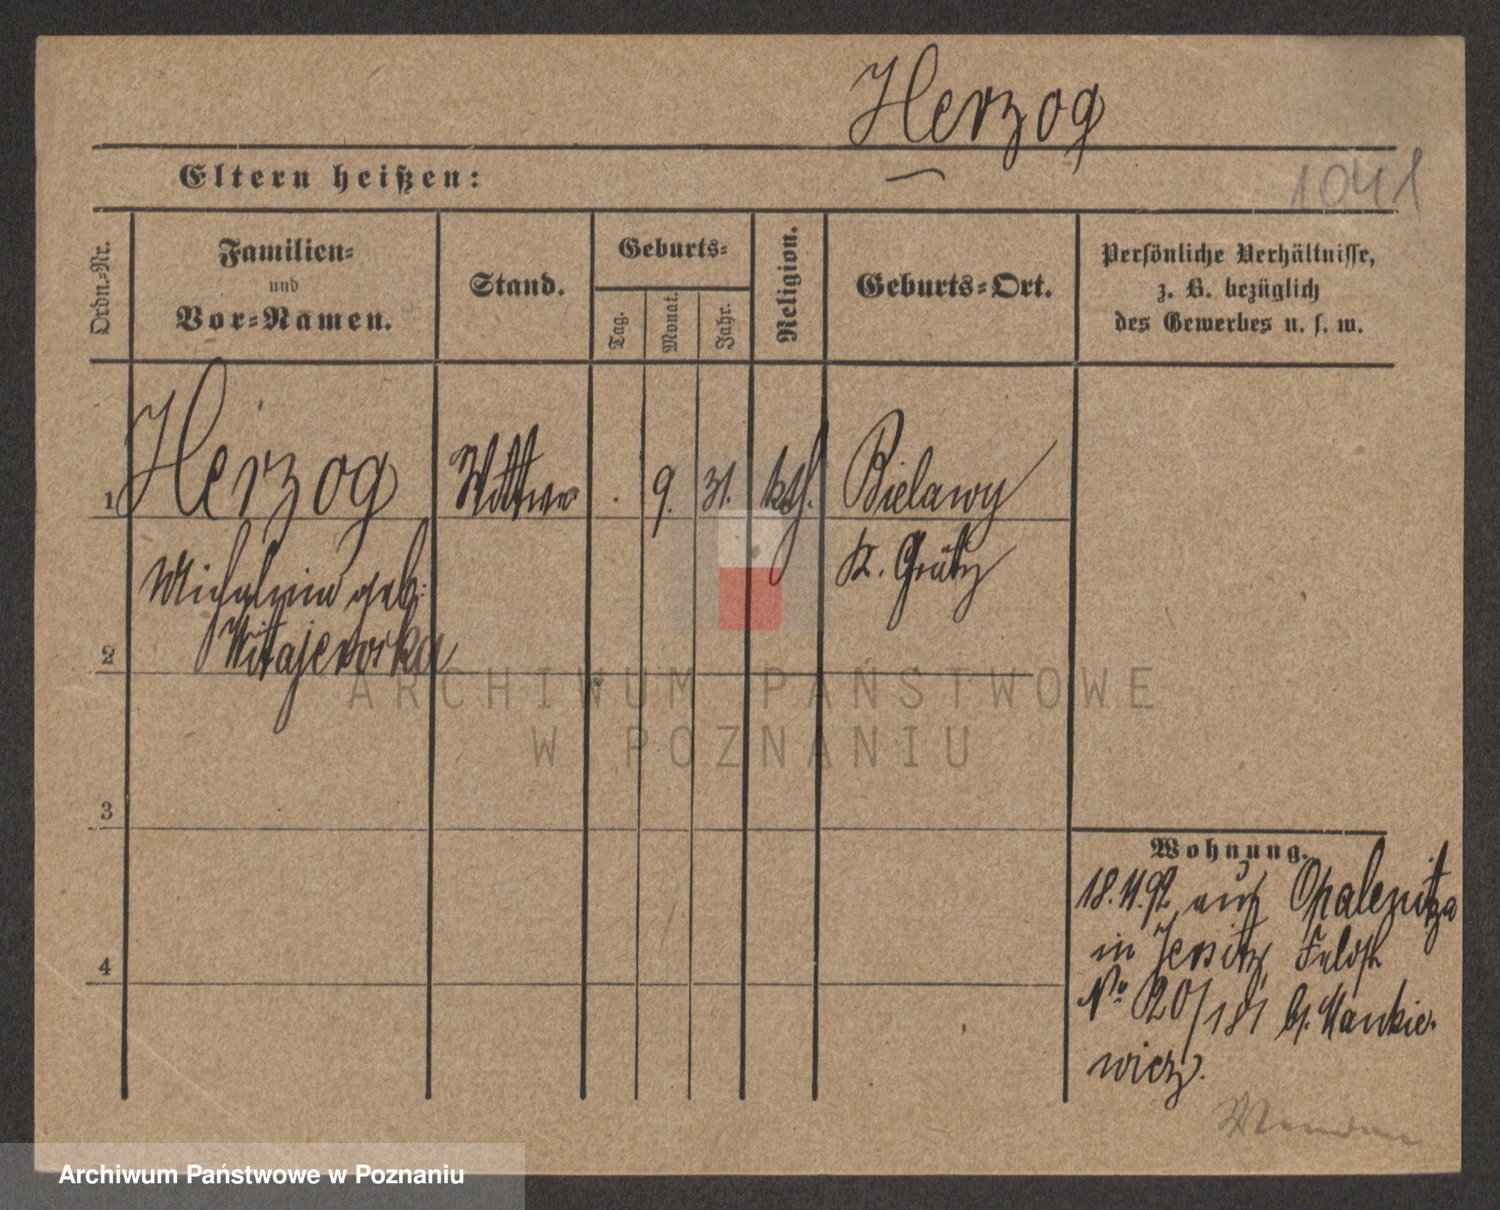 Herzog
1041
Eltern heißen:
Ordn.-Nr.
Familien-
und
Vor-Namen.
Stand.
Geburts-
Tag.
Monat.
Jahr.
Religion.
Geburts-Ort.
Persönliche Verhältnisse,
z. B. bezüglich
des Gewerbes u. s. w.
1 Herzog Wittwe . 9. 31. kth. Bielawy
K. Grätz
Michalina geb:
2
3
4
Wohnung.
18. 11. 92 aus Opalenitza
in Jersitz Feldst
No 20/181 b. Mankie-
wicz.
ARCHIWUM PAŃSTWOWE
W POZNANIU
Archiwum Państwowe w Poznaniu